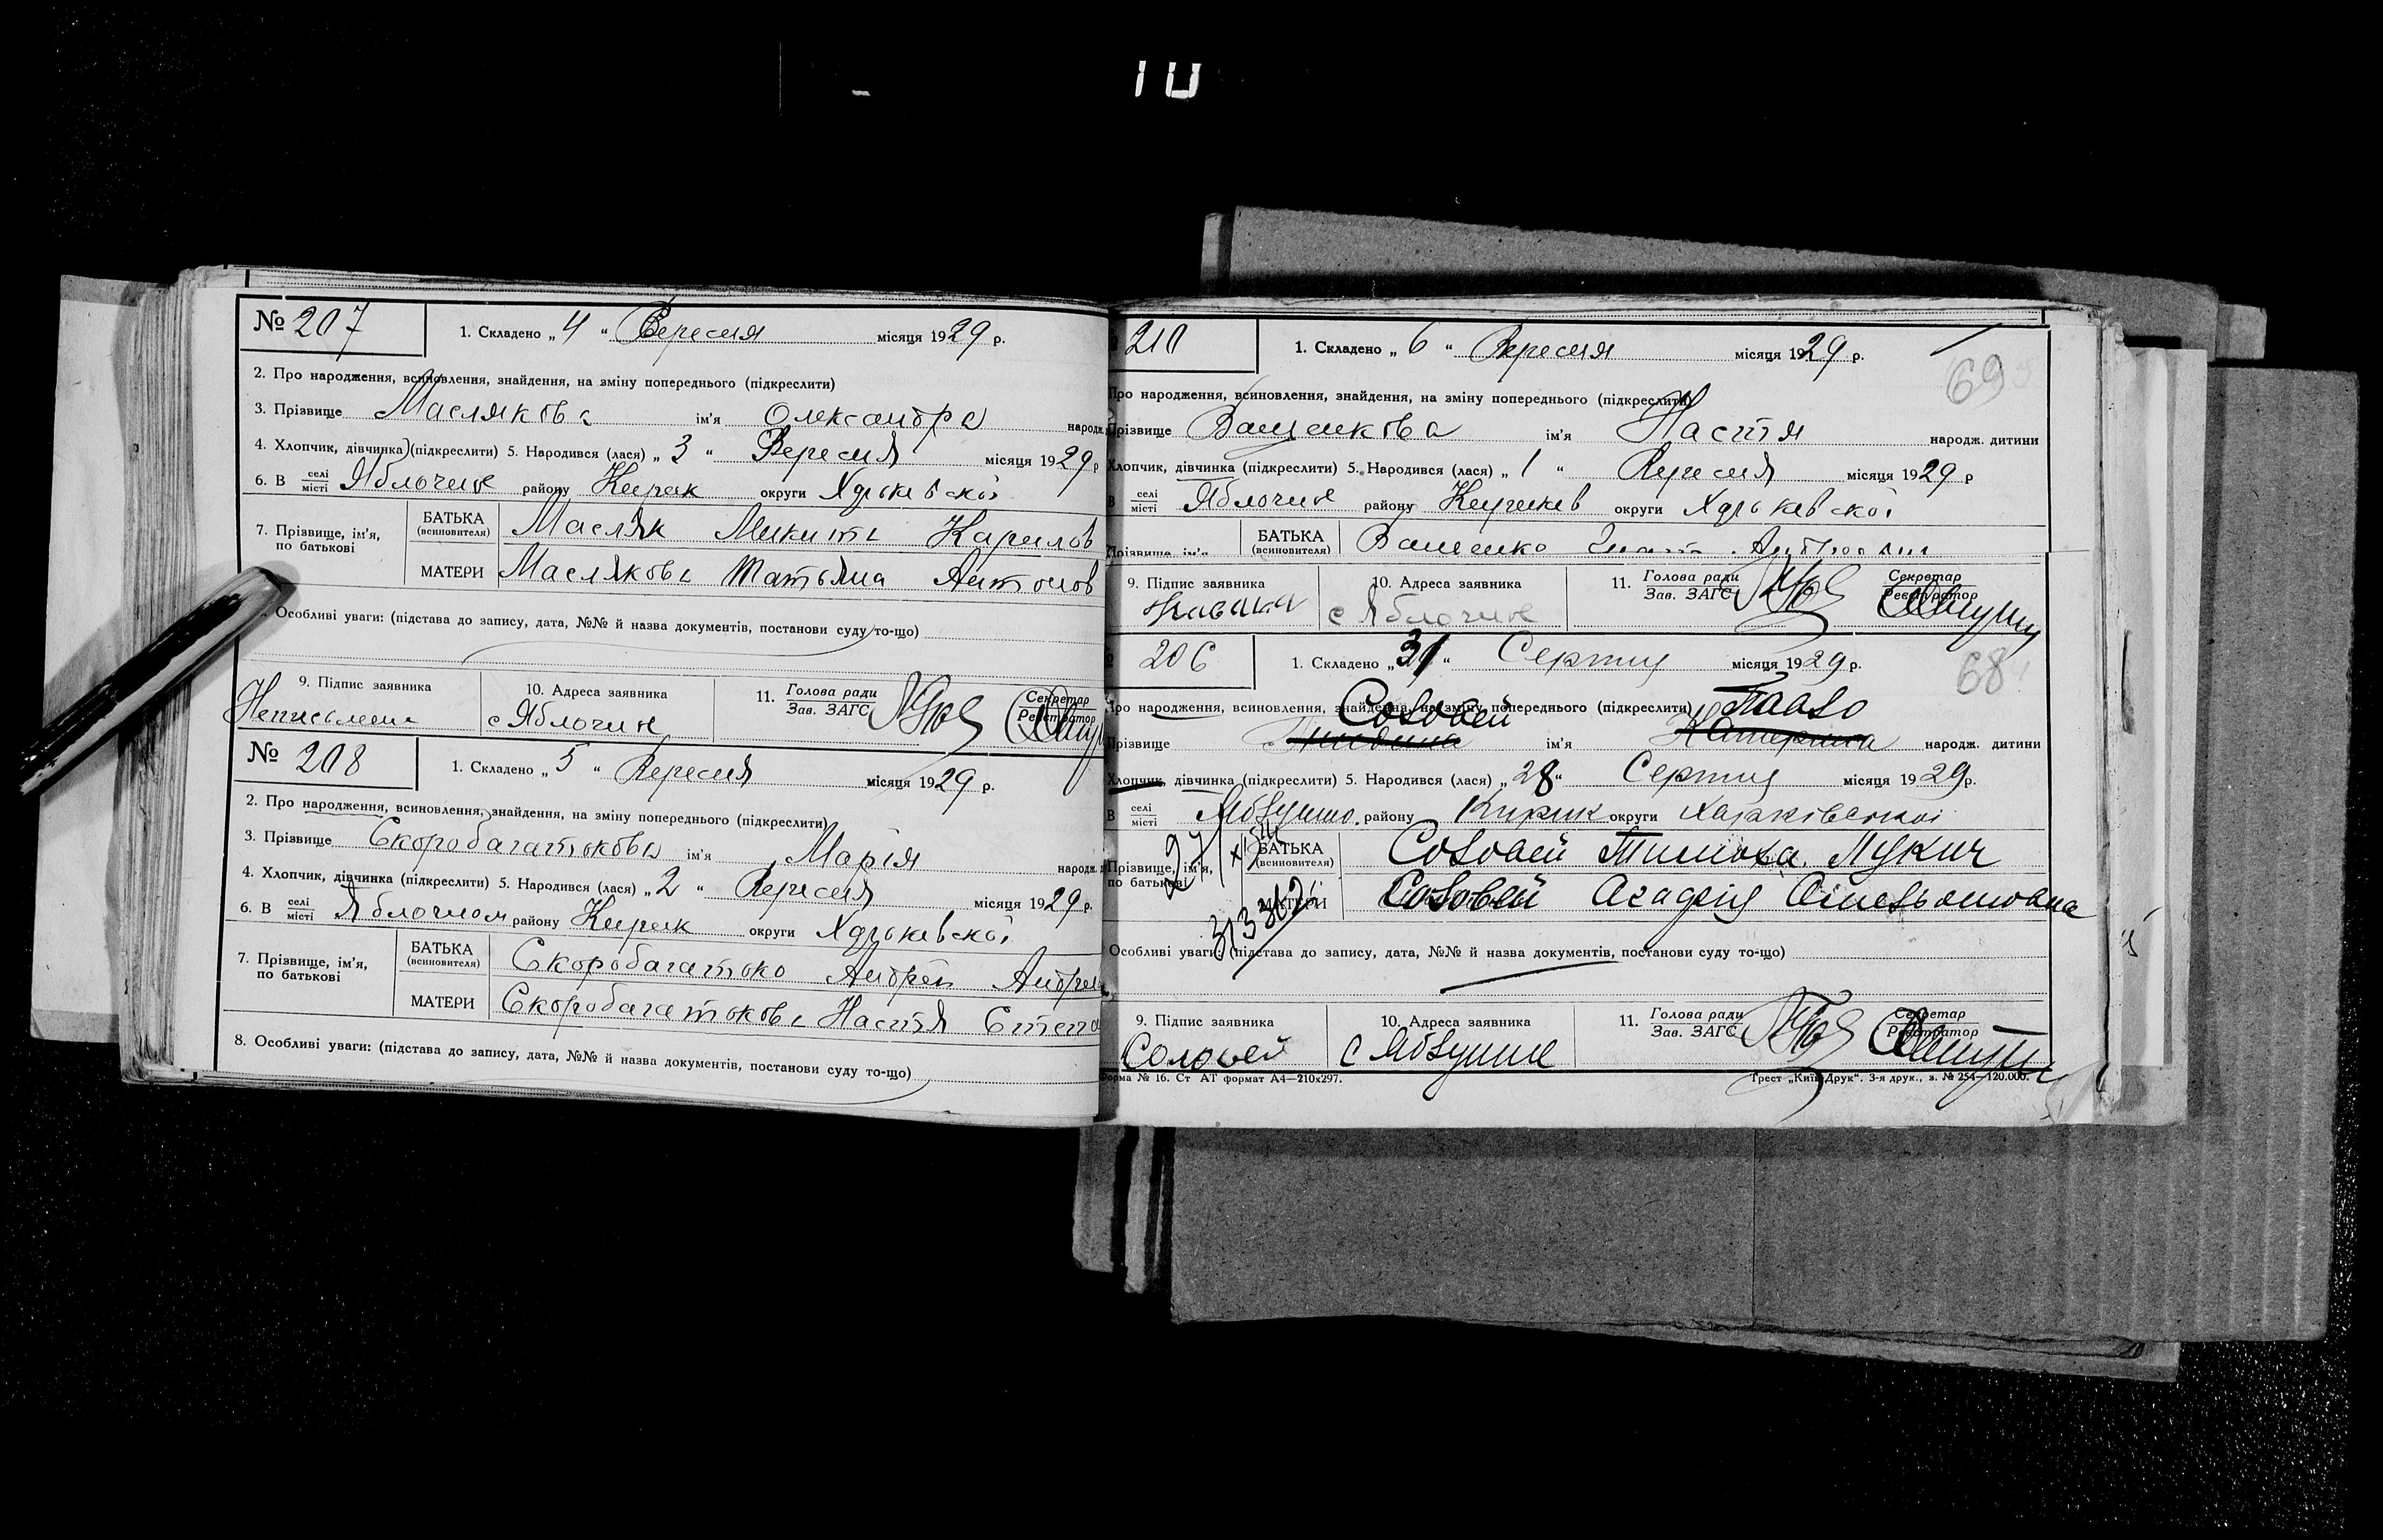 № 207
1. Складено „ 4 “ Вересня місяця 1929 р.
2. Про народження, всиновлення, знайдення, на зміну попереднього (підкреслити)
3. Прізвище Маслякова ім'я Олександра народж.
4. Хлопчик, дівчинка (підкреслити) 5. Народився (лася) „ 3 “ Вересня місяця 1929 р
6. В селі місті Яблочне району Кирик округи Харьківскої
7. Прізвище, ім'я, по батькові
БАТЬКА (всиновителя) Масляк Микита Карилов
МАТЕРИ Маслякова Татьяна Антонов
Особливі уваги: (підстава до запису, дата, №№ й назва документів, постанови суду то-що)
9. Підпис заявника 10. Адреса заявника 11. Голова ради Зав. ЗАГС Секретар Реєстратор
Неписьмена с Яблочне
№ 208
1. Складено „ 5 “ Вересня місяця 1929 р.
2. Про народження, всиновлення, знайдення, на зміну попереднього (підкреслити)
3. Прізвище Скоробагатокова ім'я Марія народж.
4. Хлопчик, дівчинка (підкреслити) 5. Народився (лася) „ 2 “ Вересня місяця 1929 р.
6. В селі місті Яблочном району Кирик округи Харьківскої
7. Прізвище, ім'я, по батькові
БАТЬКА (всиновителя) Скоробагатоко Андрей Андре
МАТЕРИ Скоробагатокова Настя Степа
8. Особливі уваги: (підстава до запису, дата, №№ й назва документів, постанови суду то-що)
210
1. Складено „ 6 “ Вересня місяця 1929 р.
69
Про народження, всиновлення, знайдення, на зміну попереднього (підкреслити)
Прізвище Ващенкова ім'я Настя народж. дитини
Хлопчик, дівчинка (підкреслити) 5. Народився (лася) „ 1 “ Вересня місяця 1929 р
В селі місті Яблочне району округи Харьківскої
Прізвище, ім'я
БАТЬКА (всиновителя) Ващенко
9. Підпис заявника 10. Адреса заявника 11. Голова ради Зав. ЗАГС Секретар Реєстратор
с Яблочне
206
1. Складено „ 31 “ Серпня місяця 1929 р.
68
Про народження, всиновлення, знайденна, на зміну попереднього (підкреслити)
Соловей Павло
Прізвище ім'я Катерина народж. дитини
Хлопчик, дівчинка (підкреслити) 5. Народився (лася) „ 28 “ Серпня місяця 1929 р.
В селі місті району Кирик округи Харківської
Прізвище, ім'я, по батькові
БАТЬКА (всиновителя) Соловей Тимоха Лукич
МАТЕРИ Соловей Омельяновна
Особливі уваги: (підстава до запису, дата, №№ й назва документів, постанови суду то-що)
9. Підпис заявника 10. Адреса заявника 11. Голова ради Зав. ЗАГС Секретар Реєстратор
Соловей с Яблушне
Форма № 16. Ст АТ формат А4—210х297. Трест „Київ-Друк“. 3-я друк., з. № 254—120.000.